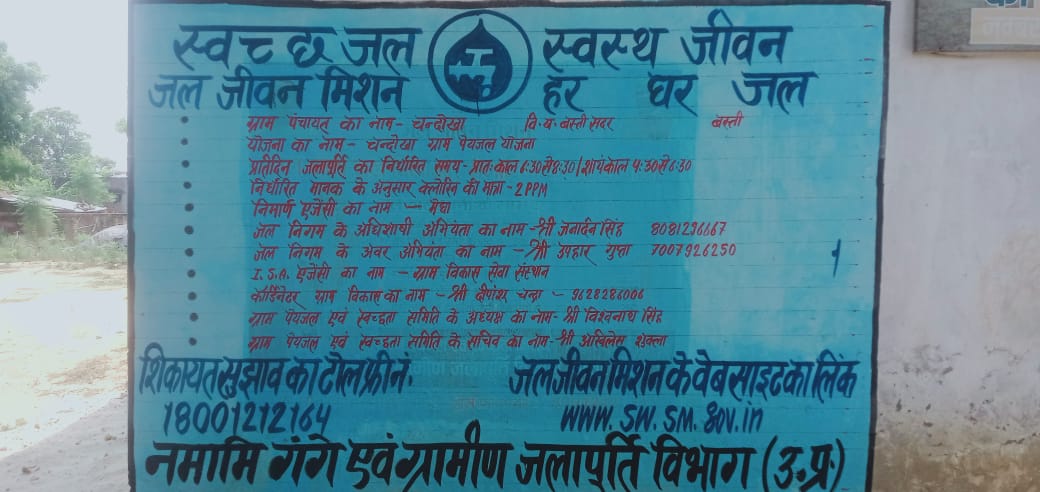 स्वच्छ जल स्वस्थ जीवन
जल जीवन मिशन हर घर जल
ग्राम पंचायत का नाम- चन्दोखा वि.ख. बस्ती सदर बस्ती
योजना का नाम- चन्दोखा ग्राम पेयजल योजना
प्रतिदिन जलापूर्ति का निर्धारित समय- प्रात:काल 6:30 से 8:30/शायंकाल 4:30 से 6:30
निर्धारित मानक के अनुसार क्लोरिन की मात्रा - 2 PPM
निमार्ण एजेंसी का नाम - मेघा
जल निगम के अधिशाषी अभियंता का नाम - श्री जनार्दन सिंह 8081236667
जल निगम के अवर अभियंता का नाम - श्री उपहार गुप्ता 7007926250
I.S.A. एजेंसी का नाम - ग्राम विकास सेवा संस्थान
कॉर्डिनेटर ग्राम विकास का नाम - श्री दीपांश चन्द्रा - 9628286006
ग्राम पेयजल एवं स्वच्छता समिति के अध्यक्ष का नाम- श्री विश्वनाथ सिंह
ग्राम पेयजल एवं स्वच्छता समिति के सचिव का नाम- श्री अखिलेस शुक्ला
शिकायत सुझाव का टोल फ्री नं: जल जीवन मिशन के वेबसाइट का लिंक
18001212164 www.sw.sm.gov.in
नमामि गंगे एवं ग्रामीण जलापूर्ति विभाग (उ.प्र.)